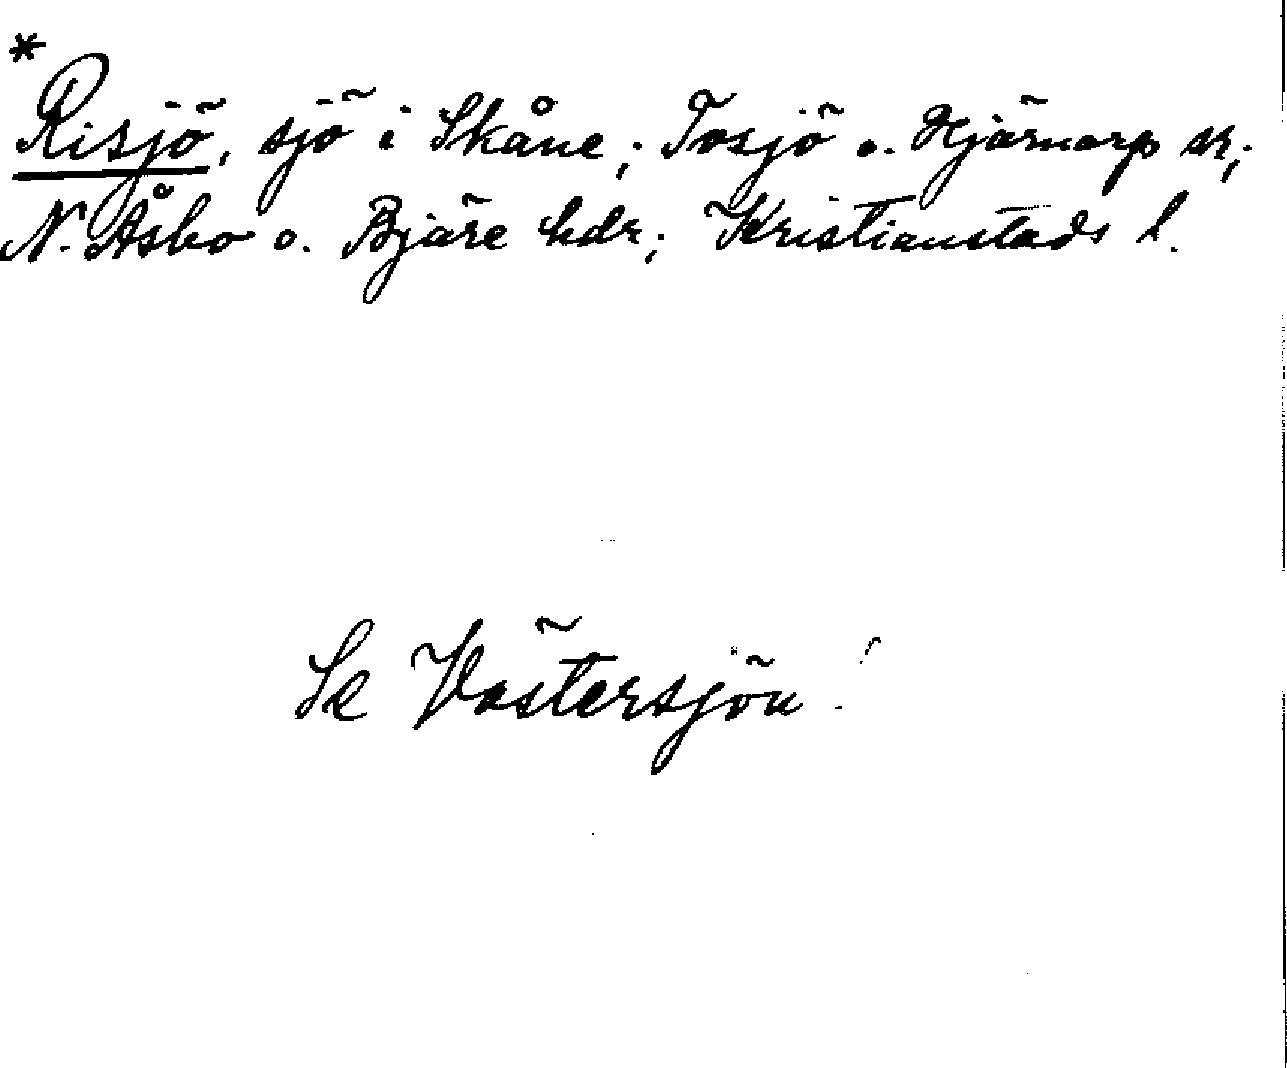 *
Risjö, sjö i Skåne; Tosjö o. Hjärnarp sn;
N. Åsbo o. Bjäre hdr; Kristianstads l.
Se Västersjön!